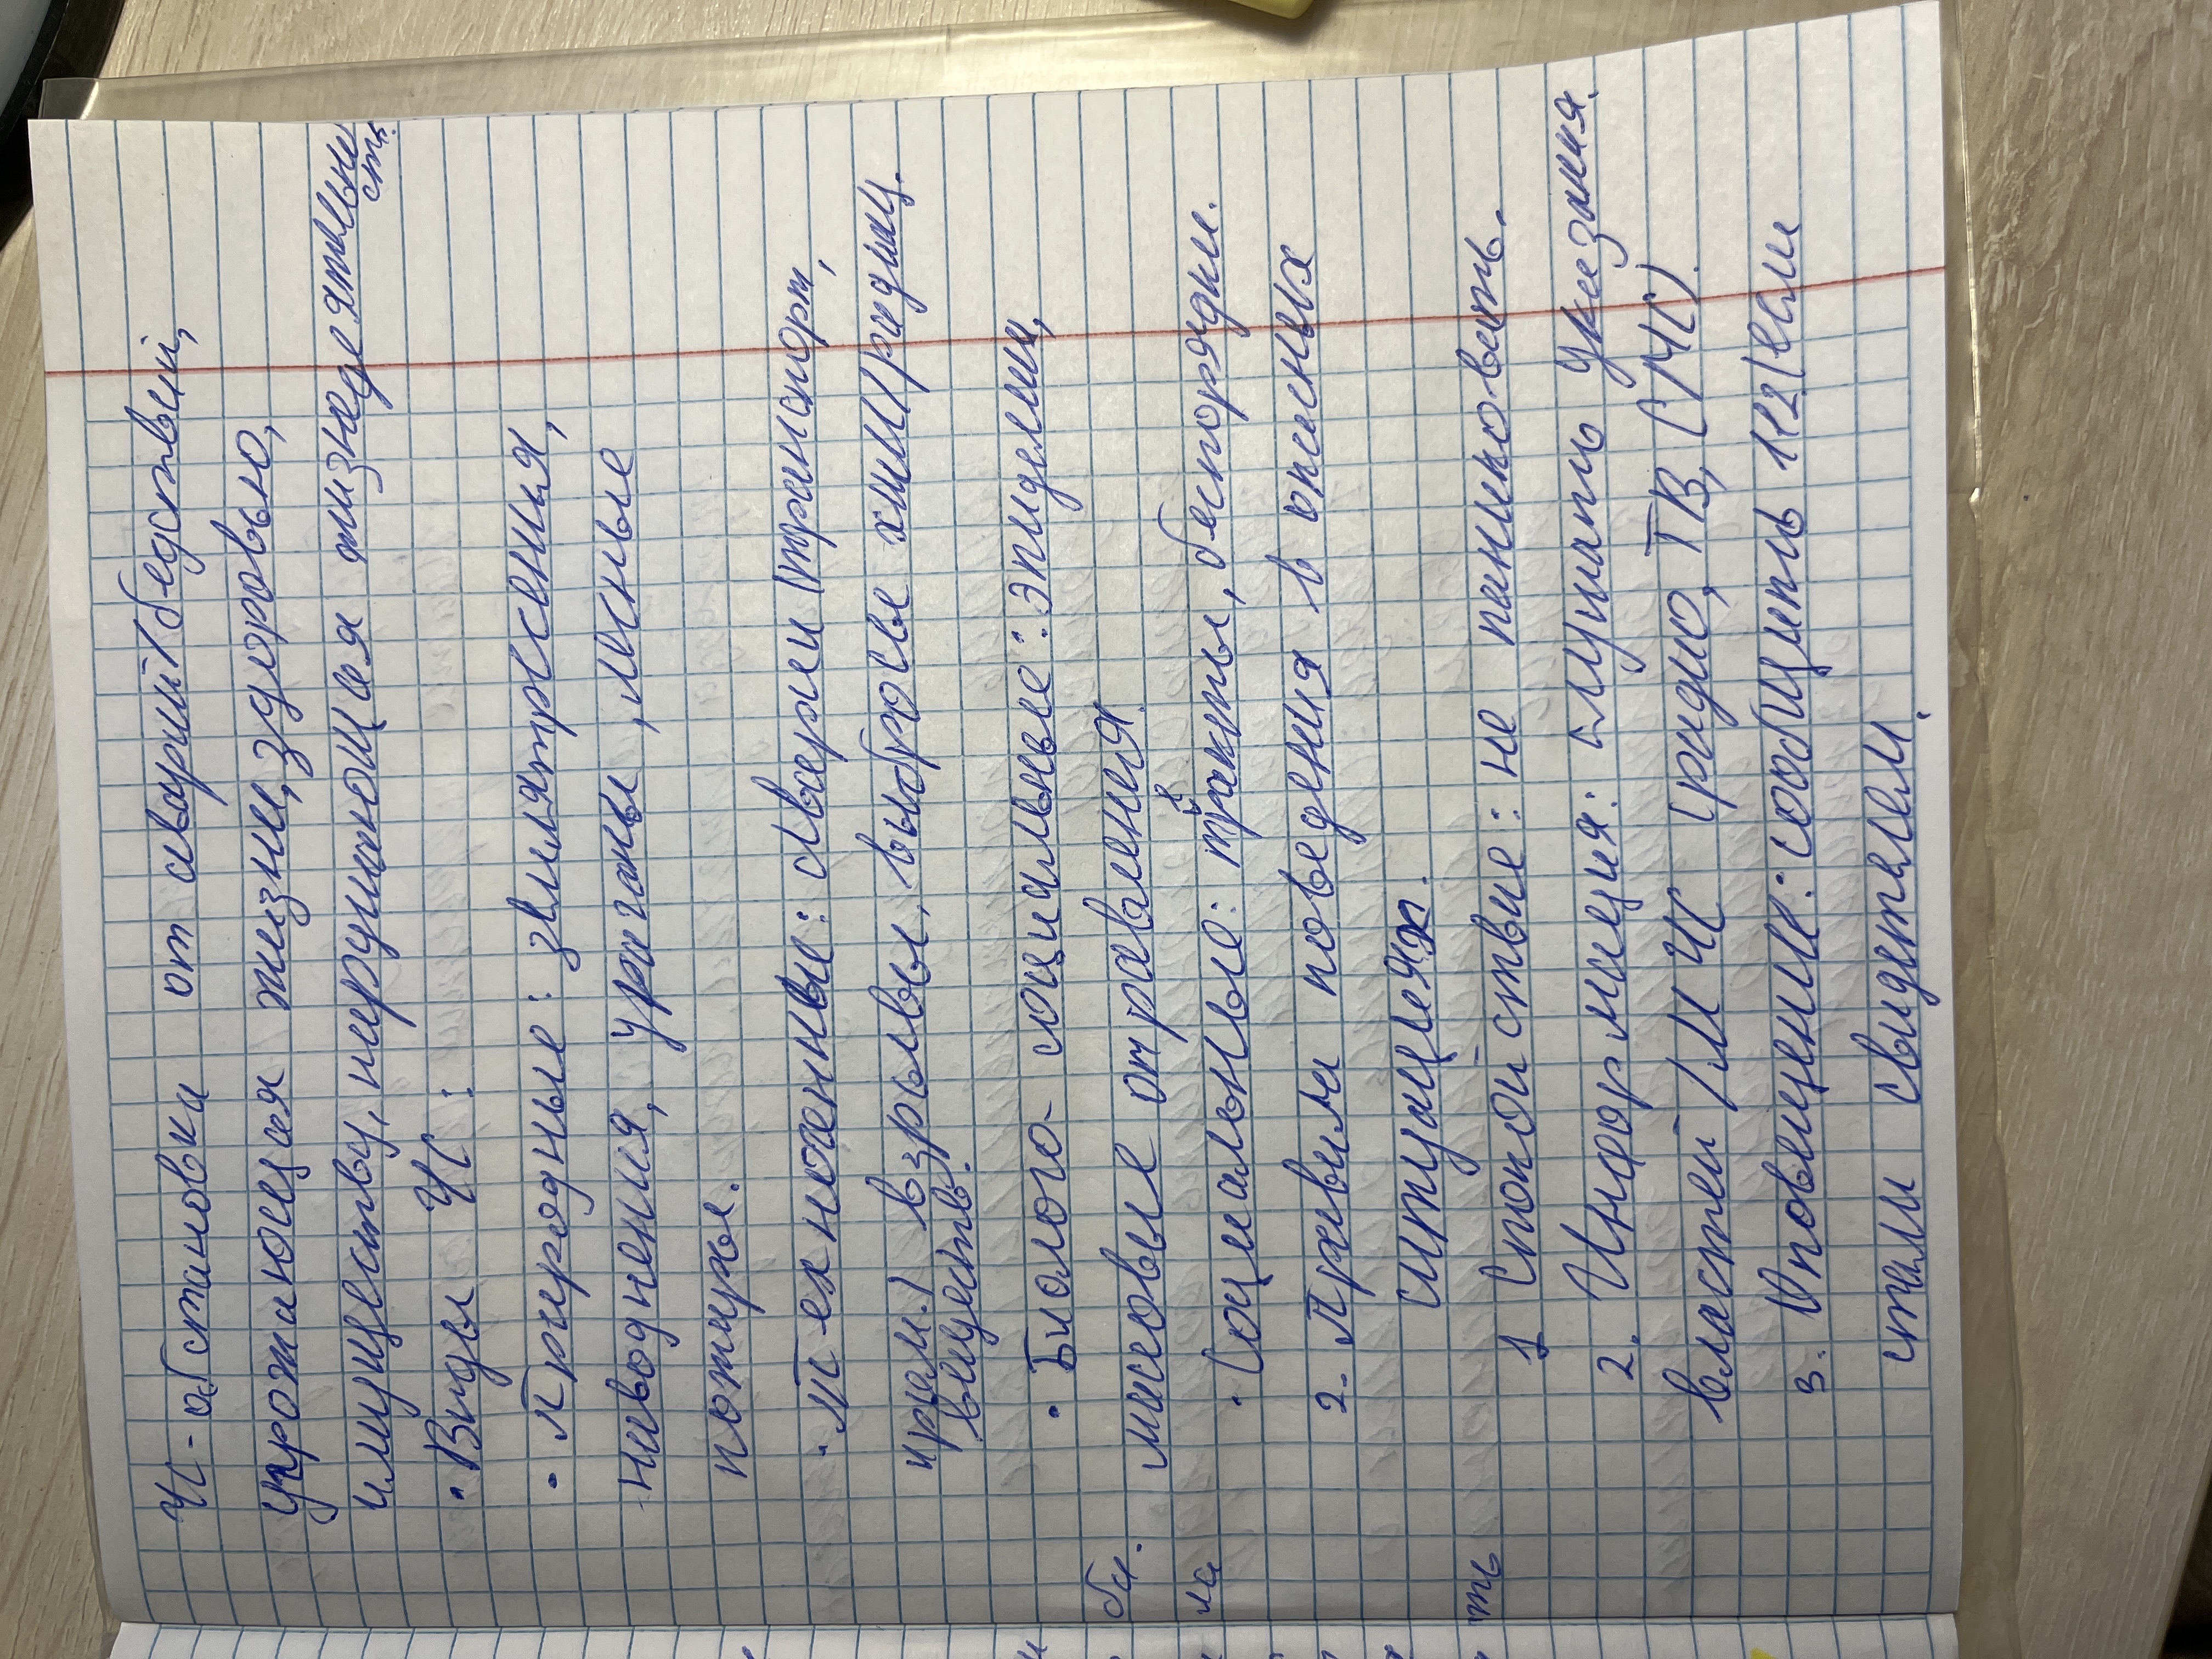 ЧС - обстановки от аварий/бедствий,
угрожающая жизни, здоровью,
имуществу, нарушающая жизнедеятельность
• Виды ЧС:
• Природные: землятрясения,
наводнения, ураганы, лесные
пожары.
• Техногенные: аварии (транспорт,
пром.) взрывы, выбросы хим/радиац.
веществ.
• Биолого-социальные: эпидемии,
массовые отравления.
• Социальные: теракты, беспорядки.
2. Правила поведения в опасных
ситуациях.
1 Спокойствие: не паниковать.
2. Информация: слушать указания
властей / М ЧС (радио, ТВ, СМС).
3. Оповещение: сообщить 112 (если
стали свидетелем.
бы.
ла
ть